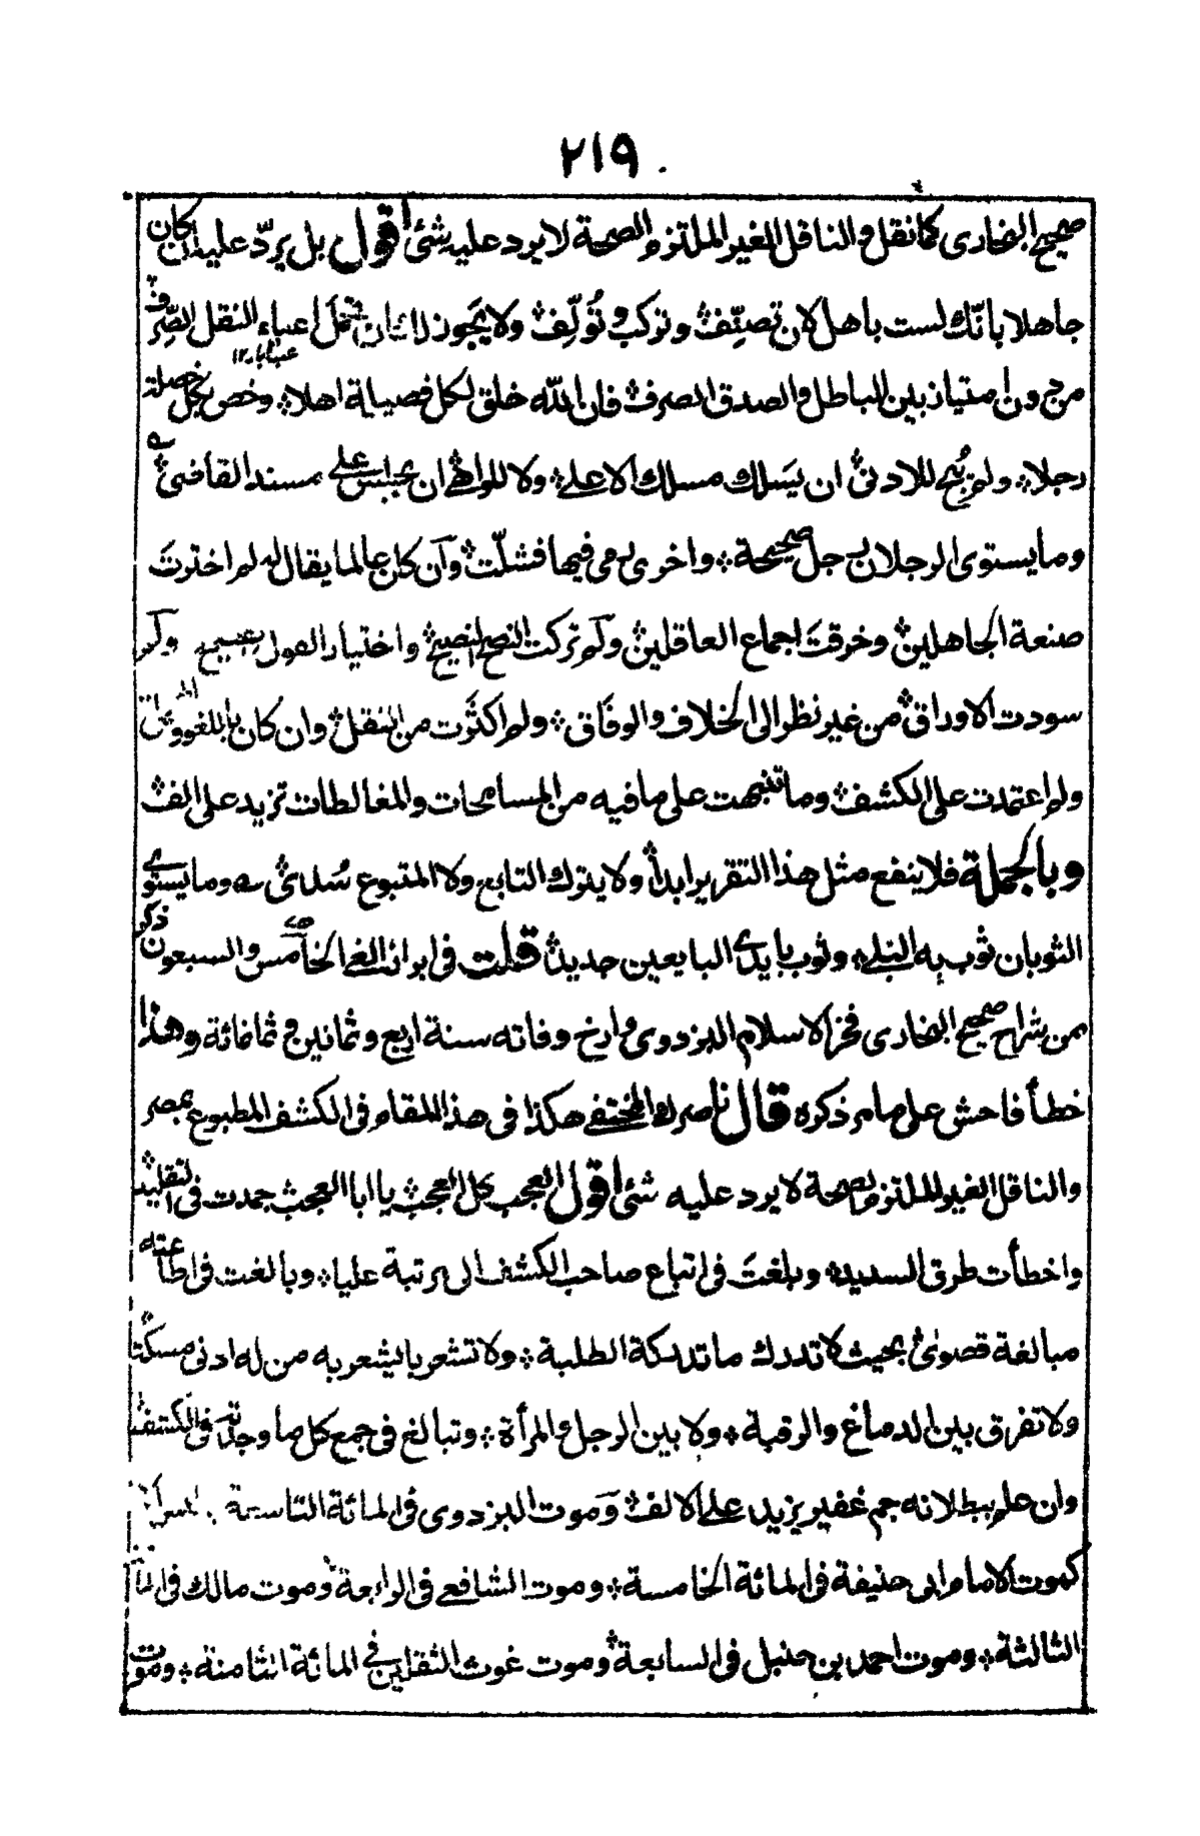 ٢١٩
صحيح البخارى كما نقل والناقل الغير الملتزم الصحة لا يرد عليه شئ اقول بل يردّ عليه ان كان
جاهلا بانّك لست باهل لان تصنّف وتركب وتُولّف ولا يَجوز لك ان تحمل اعباء النقل الصِّرف
من دون امتياز بين الباطل والصدق الصرف فان الله خلق لكل فصيلة اهلا وخص بكل خصلة
رجلا ولم يُبح للادنى ان يَسلك مسلك الاعلى ولا للواطى ان يجلس على مسند القاضى
وما يستوى الرجلان رجل صحيحة واخرى رمى فيها فشلّت وآن كان عالما يقال له لم اخترتَ
صنعة الجاهلين وخرقتَ اجماع العاقلين ولم تركت النصح النصيح واختيار القول ولم
سودت الاوراق من غير نظر الى الخلاف والوفاق ولم اكثَرت من النقل وان كان باللغو
ولم اعتمدت على الكشف وما تنبهت على ما فيه من المسامحات والمغالطات تزيد على الف
وبالجملة فلا ينفع مثل هذا التقرير ابدا ولا يترك التابع ولا المتبوع سُدى ٥ وما يستوى
الثوبان ثوب به البلى وثوب بايدى البايعين جديد قلت فى ابراز الغى الخامس والسبعون ذكر
من شراح صحيح البخارى فخر الاسلام البزدوى وارخ وفاته سنة اربع وثمانين وثمانمائة وهذا
خطأ فاحش على ما مر ذكره قال ناصرك المختفى هكذا فى هذا المقام فى الكشف المطبوع بمصر
والناقل الغير الملتزم الصحة لا يرد عليه شئ اقول العجب كل العجب يا ابا العجب جمدت فى التقليد
واخطأت طرق السديد وبلغتَ فى اتباع صاحب الكشف الى مرتبة عليا وبالغت فى اطاعته
مبالغة قصوى بحيث لا تدرك ما تدركة الطلبة ولا تشعر بما يشعر به من له ادنى مسكة
ولا تفرق بين الدماغ والرقبة ولا بين الرجل والمرأة وتبالغ فى جمع كل ما وجدته فى الكشف
وان علم ببطلانه جم غفير يزيد على الالف وموت البزدوى فى المائة التاسعة
كموت الامام ابى حنيفة فى المائة الخامسة وموت الشافعى فى الرابعة وموت مالك فى المائة
الثالثة وموت احمد بن حنبل فى السابعة وموت غوث الثقلين فى المائة الثامنة وموت